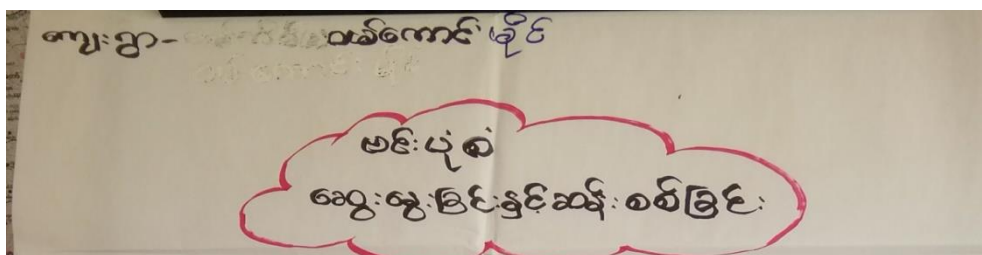 ကျေးရွာ- ဝမ်ကောင်းမိုင်
ဗင်းပုံစံ
ဆွေးနွေးခြင်းနှင့်ဆန်းစစ်ခြင်း